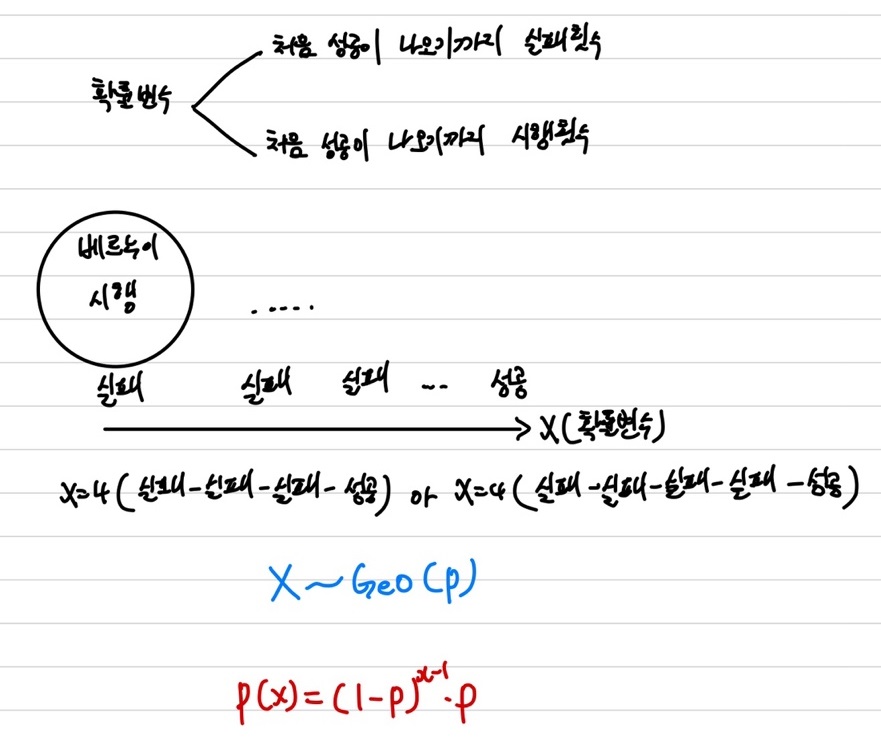 처음 성공이 나오기까지 실패횟수
확률변수
처음 성공이 나오기까지 시행횟수
베르누이
시행
.....
실패 실패 실패 ... 성공
X(확률변수)
X=4(실패-실패-실패-성공) or X=4(실패-실패-실패-실패-성공)
X~Geo(p)
p(x)=(1-p)^{x-1}·p